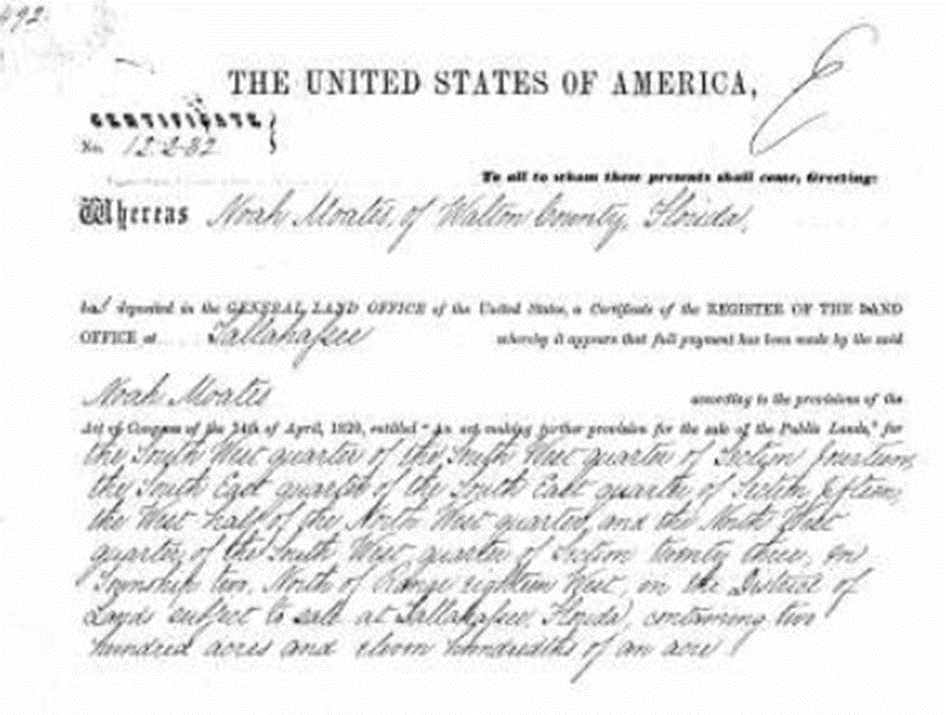 492.
THE UNITED STATES OF AMERICA,
E
CERTIFICATE
No. 12232
To all to whom these presents shall come, Greeting:
Whereas Noah Moates, of Walton County, Florida,
had deposited in the GENERAL LAND OFFICE of the United States, a Certificate of the REGISTER OF THE LAND
OFFICE at Tallahassee whereby it appears that full payment has been made by the said
Noah Moates according to the provisions of the
Act of Congress of the 24th of April, 1820, entitled "An act making further provision for the sale of the Public Lands," for
the South West quarter of the South West quarter of Section fourteen,
the South East quarter of the South East quarter of Section fifteen,
the West half of the North West quarter, and the North West
quarter of the South West quarter of Section twenty three, in
Township two, North of Range eighteen West, in the District of
Lands subject to sale at Tallahassee, Florida, containing two
hundred acres and eleven hundredths of an acre